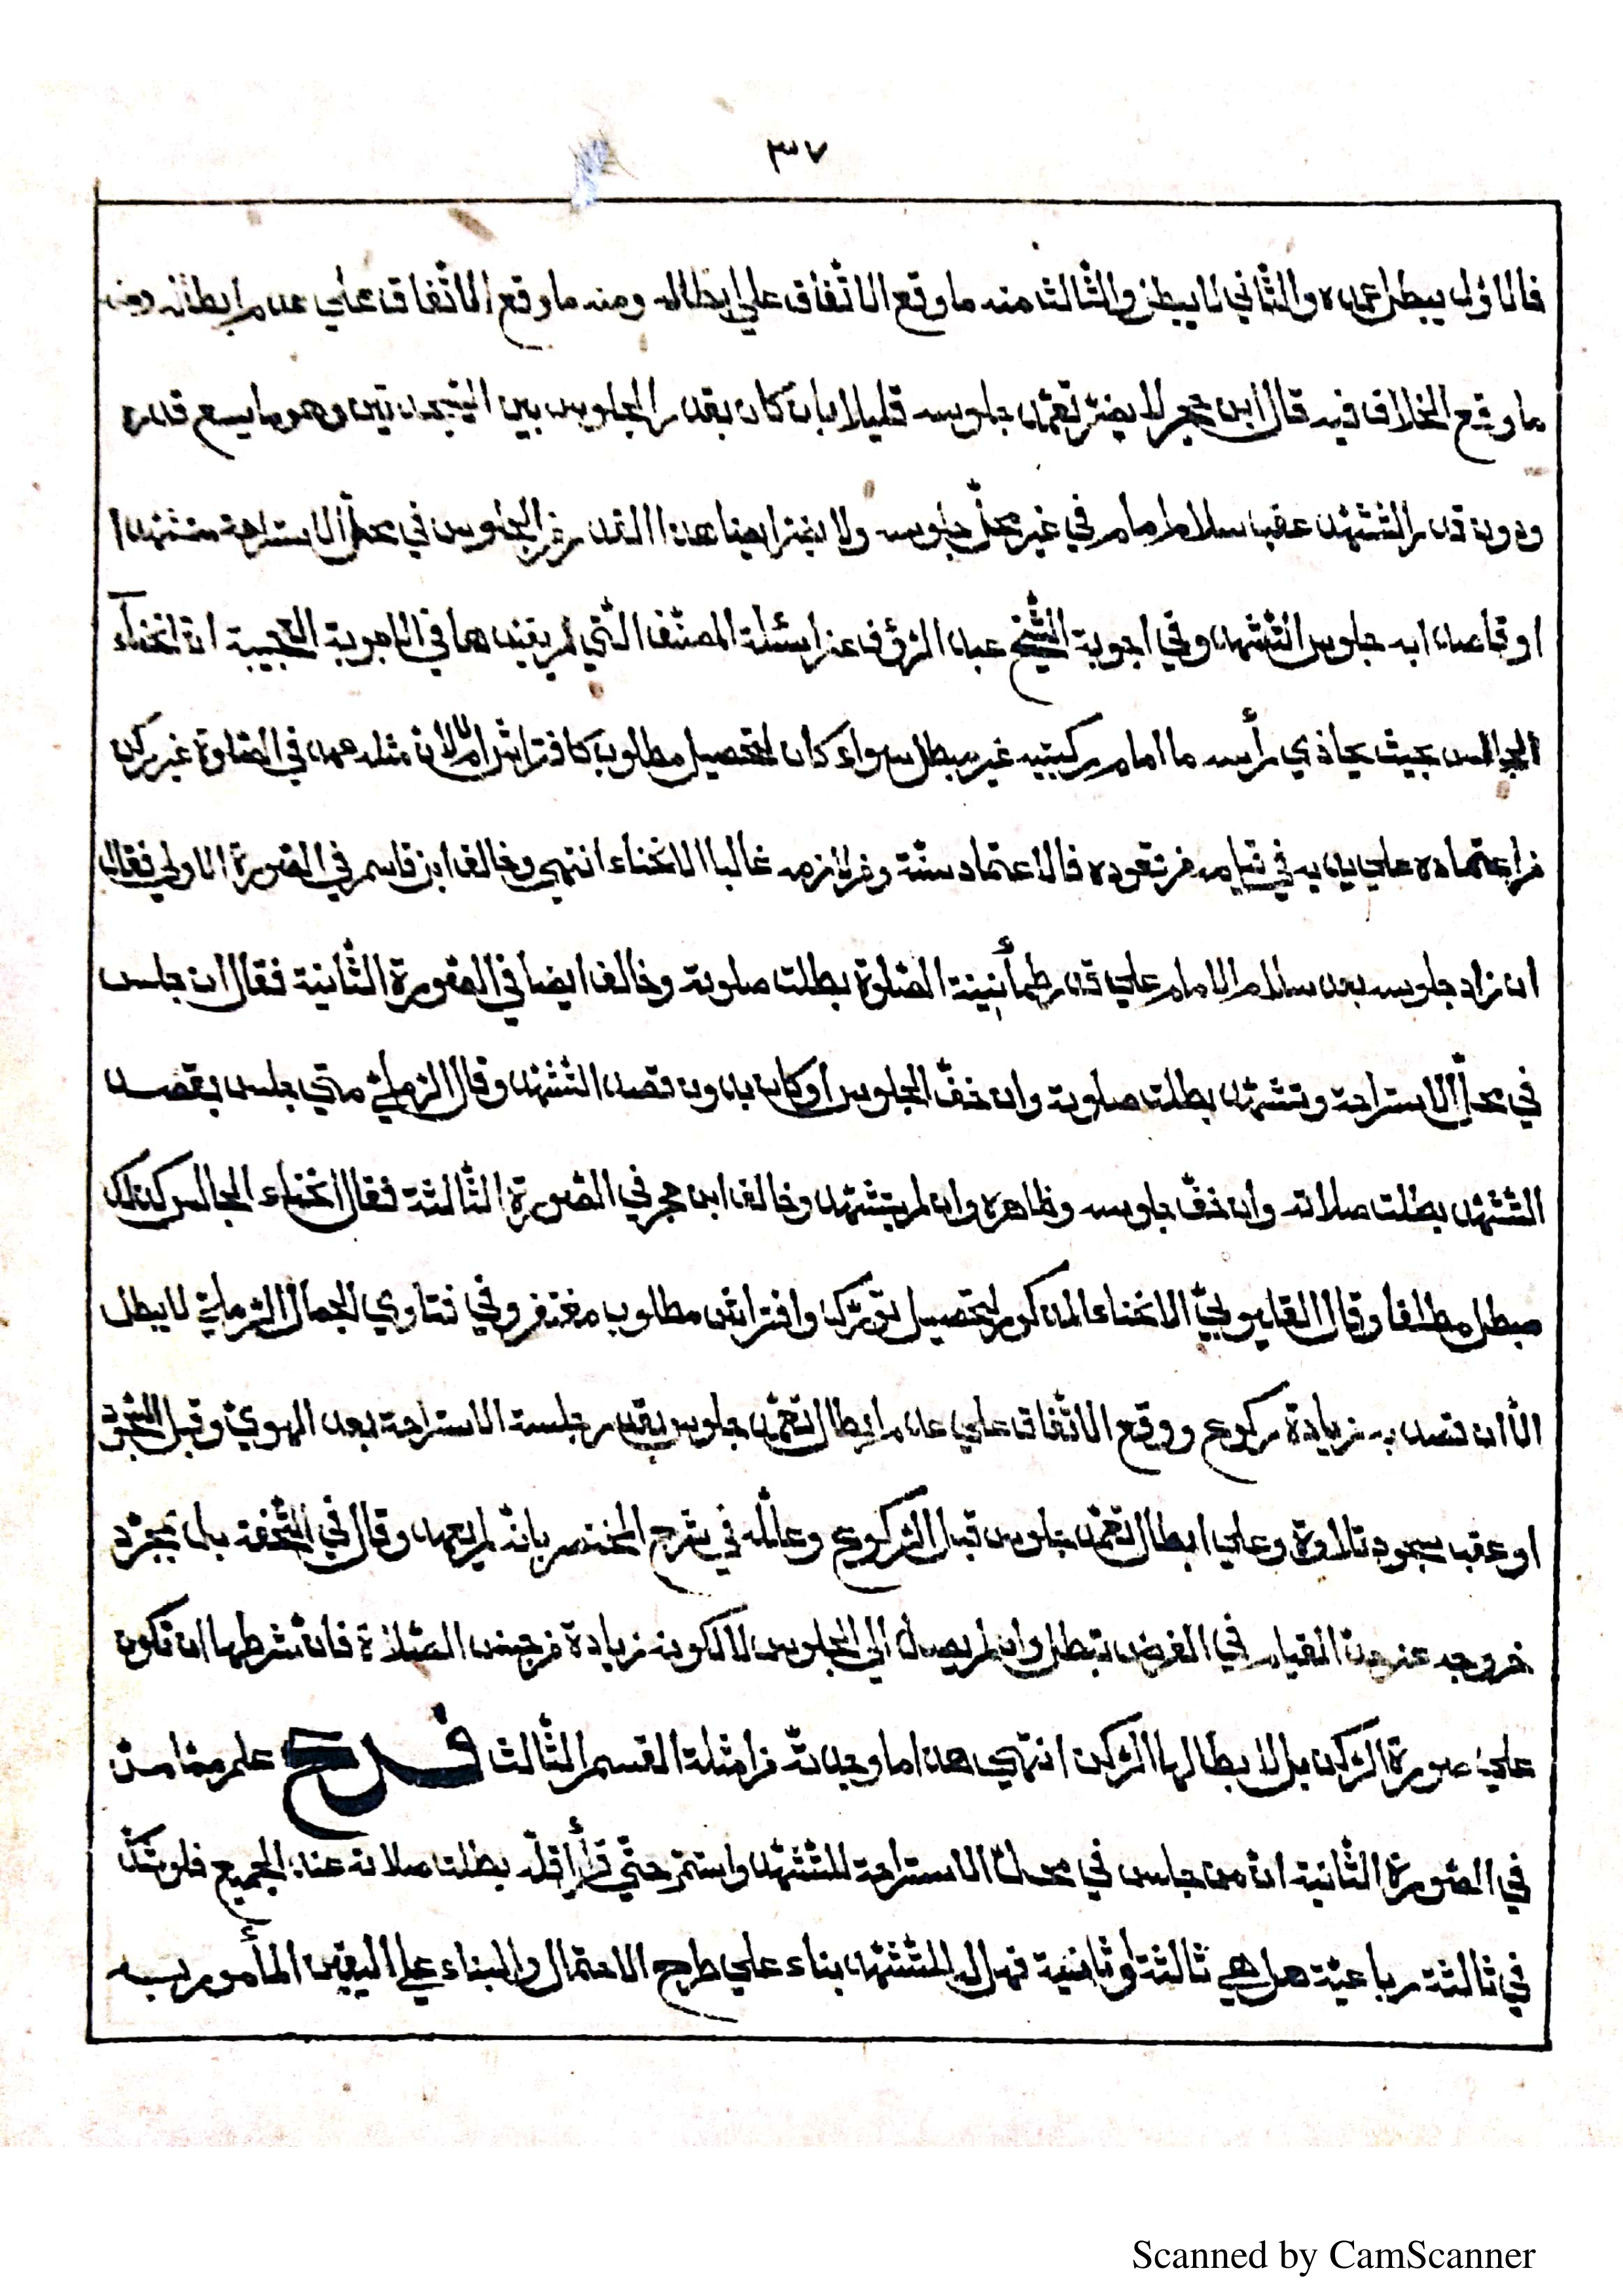 ٣٧
فالاوّل يبطل عمده والثّاني لا يبطل والثّالث منه ما وقع الاتّفاق علي ابطاله ومنه ما وقع الاتّفاق علي عدم ابطاله ومنه
ما وقع الخلاف فيه قال ابن حجر لا يضرّ تعمّد جلوسه قليلا بان كان بقدر الجلوس بين السّجدتين وهو ما يسع قدره
ودون قدر التّشهّد عقب سلام امام في غير محلّ جلوسه ولا يضرّ ايضا هذا القدر من الجلوس في محلّ الاستراحة متشهّدا
او قاصدا به جلوس التّشهّد وفي اجوبة الشّيخ عبد الرّؤف عن اسئلة المصنّف الّتي لم يقيّدها في الاجوبة العجيبة انّ انحناء
الجالس بحيث يحاذي رأسه ما امام ركبتيه غير مبطل سواء كان لتحصيل مطلوب كافتراش ام لا لانّ مثله عهد في الصّلوة غير ركن
من اعتماده علي يديه في قيامه من قعوده فالاعتماد سنّة ومن لازمه غالبا الانحناء انتهي وخالف ابن قاسم في الصّورة الاولي فقال
ان زاد جلوسه بعد سلام الامام علي قدر طمأنينة الصّلوة بطلت صلوته وخالف ايضا في الصّورة الثّانية فقال ان جلس
في محلّ الاستراحة وتشهّد بطلت صلوته وان خفّ الجلوس او كان بدون قصد التّشهّد وقال الرّمليّ متي جلس بقصد
التّشهّد بطلت صلاته وان خفّ جلوسه وظاهره وان لم يتشهّد وخالف ابن حجر في الصّورة الثّالثة فقال انحناء الجالس كذلك
مبطل مطلقا وقال القليوبيّ الانحناء المذكور لتحصيل تورّك وافتراش مطلوب مغتفر وفي فتاوي الجمال الرّمليّ لا يبطل
الّا ان قصد به زيادة ركوع ووقع الاتّفاق علي عدم ابطال تعمّد جلوس بقدر جلسة الاستراحة بعد الهويّ وقبل السّجود
او عقب سجود تلاوة وعلي ابطال تعمّد جلوس قبل الرّكوع وعلّله في شرح المختصر بانّه لم يعهد وقال في التّحفة بل بمجرّد
خروجه عن حدّ القيام في الفرض تبطل وان لم يصل الي الجلوس لا لكونه زيادة من جنس الصّلاة فانّ شرطها ان تكون
علي صورة الرّكن بل لابطالها الرّكن انتهي هذا ما وجدته من امثلة القسم الثّالث فرع علم ممّا مرّ
في الصّورة الثّانية انّ من جلس في محلّ الاستراحة للتّشهّد واستمرّ حتّي قرأ اقلّه بطلت صلاته عند الجميع فلو شكّ
في ثالثة رباعيّة هل هي ثالثة او ثانية فهل له التّشهّد بناء علي طرح الاحتمال والبناء علي اليقين المأمور به
Scanned by CamScanner